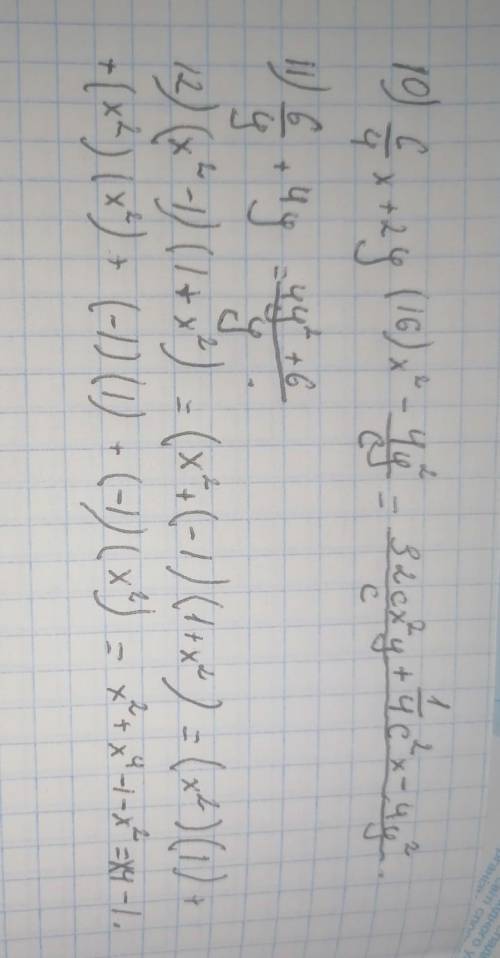 10) c/4 x + 2y (16) x² - 4y²/c = 32cx²y + 1/4 c²x - 4y² / c.
11) 6/y + 4y = 4y² + 6 / y.
12) (x² - 1) (1 + x²) = (x² + (-1) (1 + x²) = (x²) (1) +
+ (x²) (x²) + (-1) (1) + (-1) (x²) = x² + x⁴ - 1 - x² = x4 - 1.